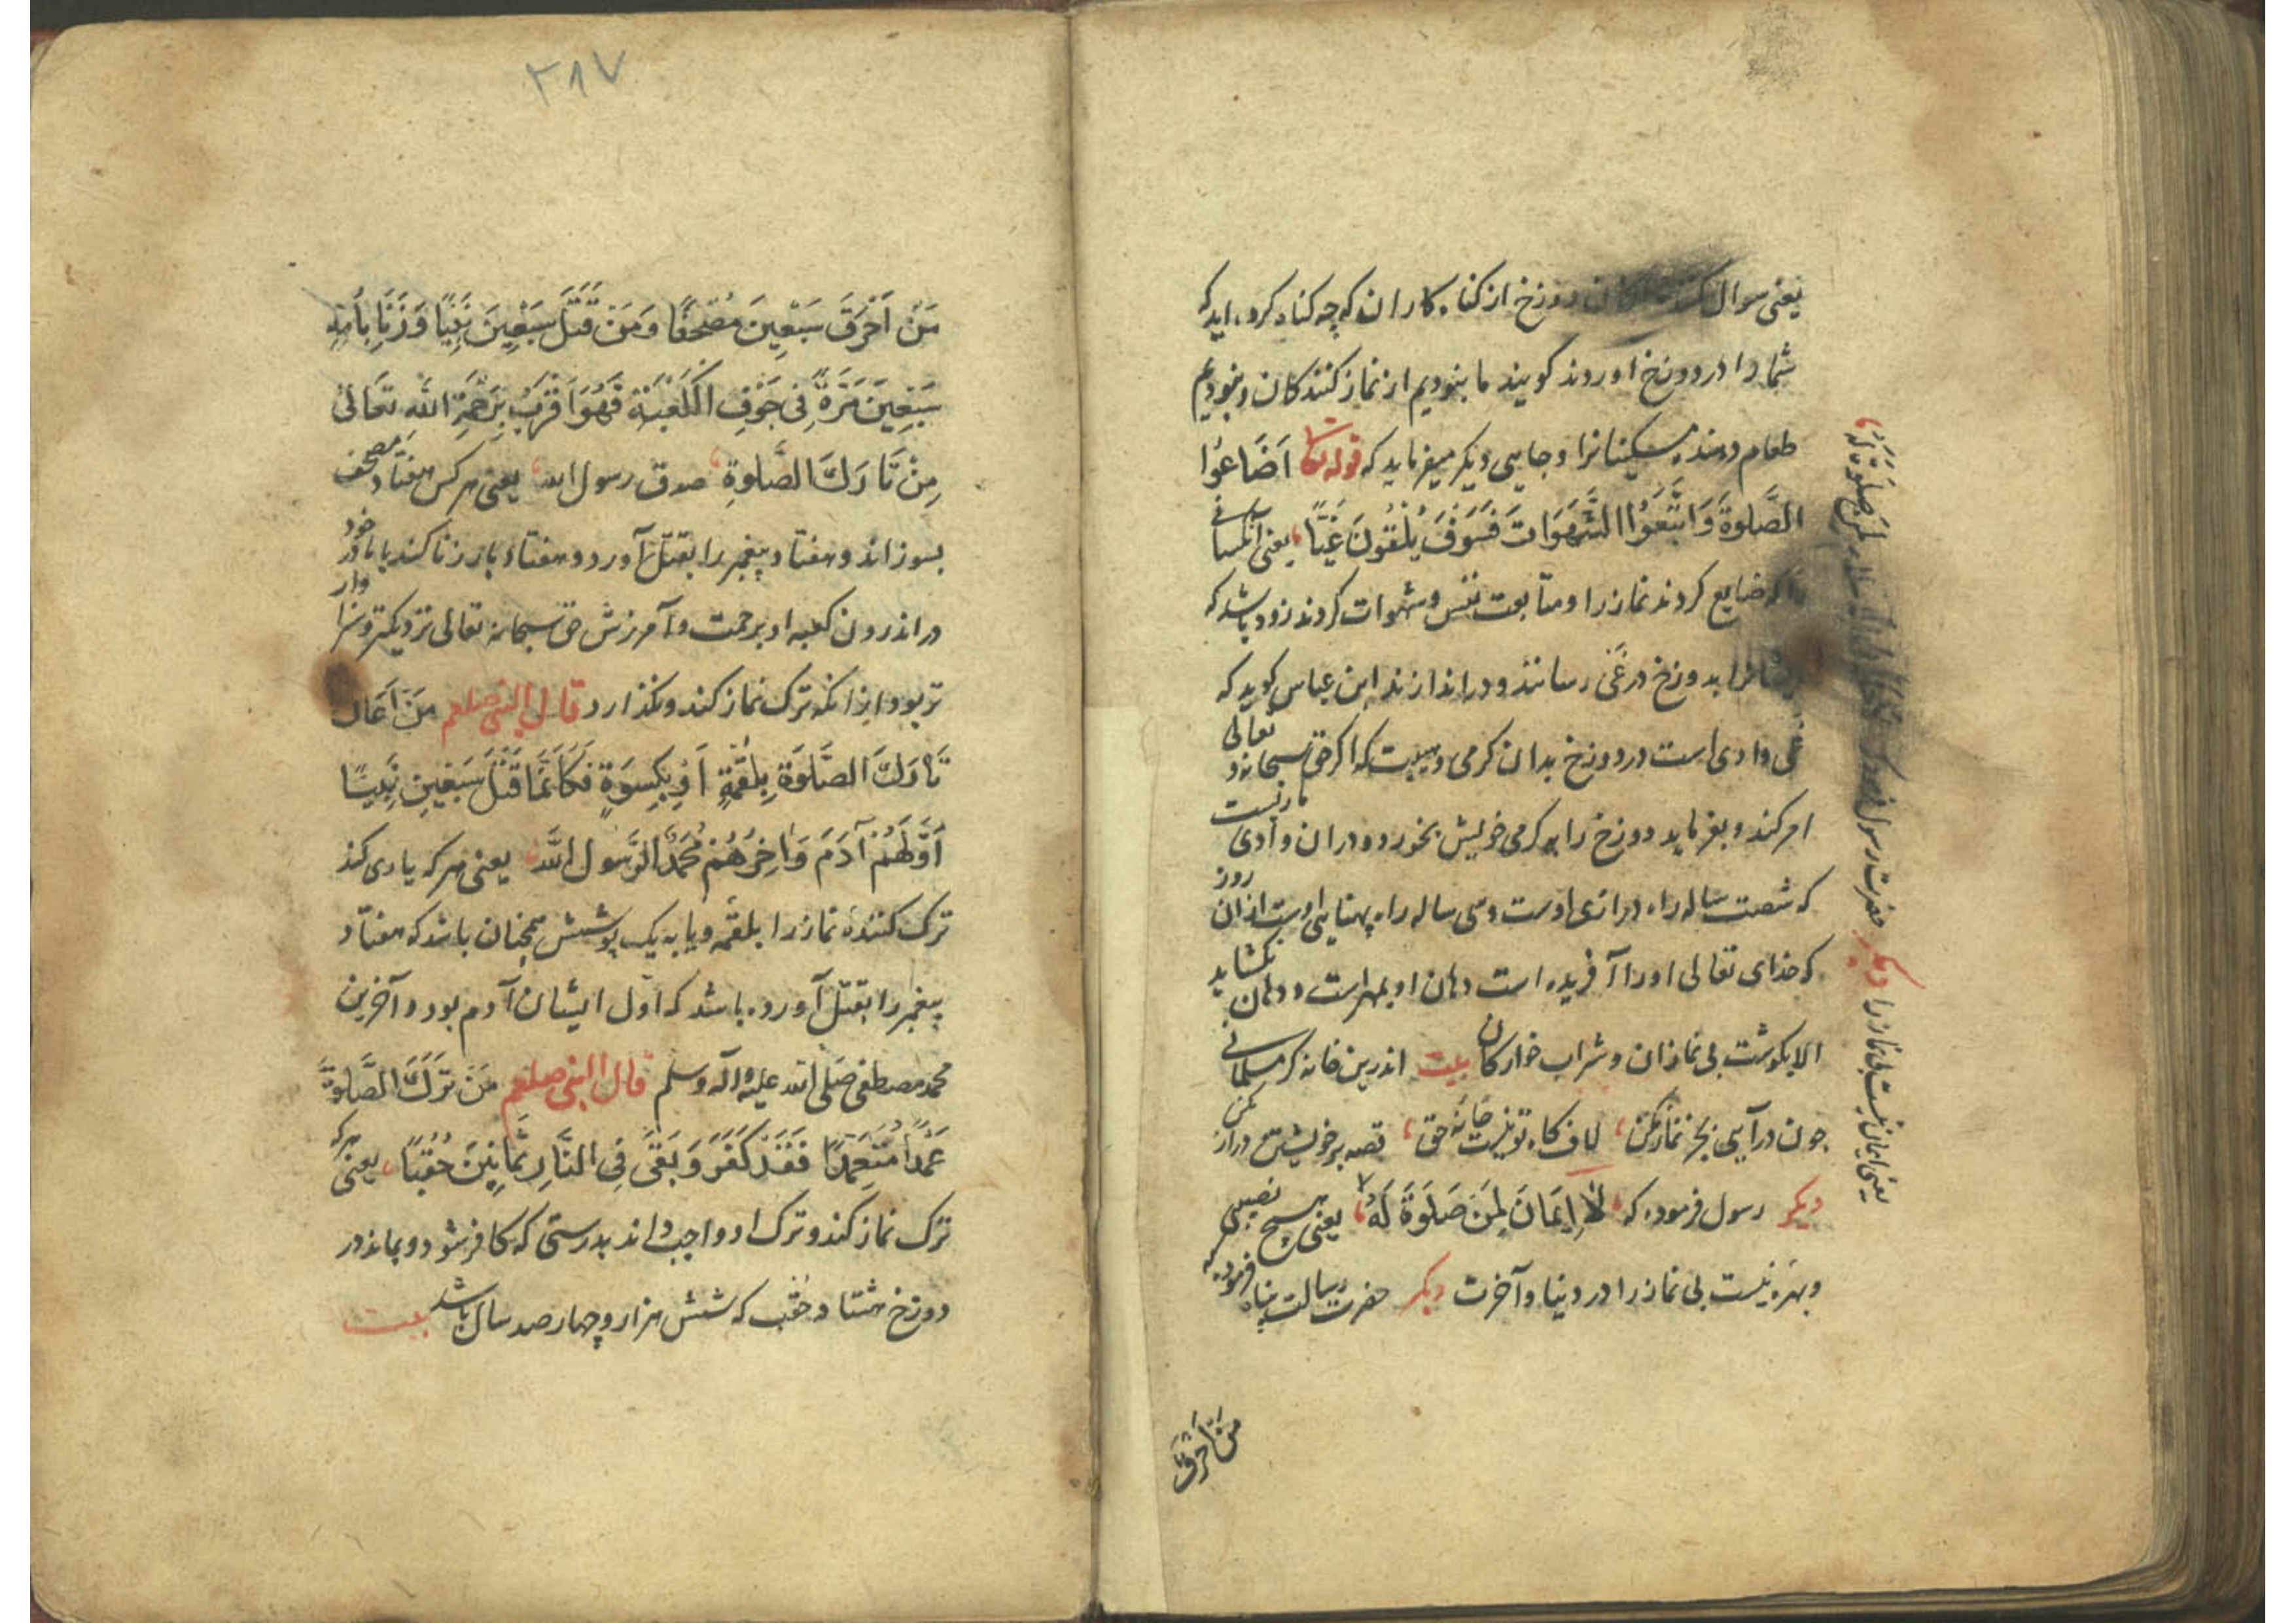 یعنی سوال کنند دوزخ از کناه کاران که چه کناه کرده اید که
شما را در دوزخ آوردند کویند ما نبودیم از نماز کنندکان و نبودیم
طعام دهنده مسکینانرا و جایی دیکر میفرماید که قوله تعا اَضَاعُوا
الصَّلوةَ وَاتَّبَعُوا الشَّهَوَاتَ فَسَوْفَ يُلْقَوْنَ غَيًّا یعنی آنکسانی
را که ضایع کردند نماز را و متابعت نفس و شهوات کردند زود باشد که
ایشانرا بدوزخ در غی رسانند و دراندازند ابن عباس کوید که
غی وادی است در دوزخ بدان کرمی و هیبت که اکر حق سبحانه و تعالی
امر کند و بفرماید دوزخ را بر کرمی خویش بخورد و دران وادی مارنست
که شصت ساله راه درازی اوست و سی ساله راه پهنایی اوست ازان روز
که خدای تعالی اورا آفریده است دهان او بمهر است و دهان نکشاید
الا بکوشت بی نمازان و شراب خوارکان بیت اندرین خانه کر مسلمانی
چون درآیی بجز نماز مکن لاف کاه تو نیست خانهٔ حق قصه بر خویشتن دراز مکن
دیکر رسول فرموده که لَا اِيمَانَ لِمَنْ لَا صَلَوةَ لَهُ یعنی هیچ نصیبی
و بهره نیست بی نماز را در دنیا و آخرت دیکر حضرت رسالت پناه فرموده که
یعنی ایمان نیست بی نماز را دیکر حضرت رسول فرموده که
من احرق
۲۸۷
مَنْ اَحْرَقَ سَبْعِينَ مُصْحَفًا وَمَنْ قَتَلَ سَبْعِينَ نَبِيًّا وَزَنَا بِأُمِّهِ
سَبْعِينَ مَرَّةً فِي جَوْفِ الْكَعْبَةِ فَهُوَ اَقْرَبُ بِرَحْمَةِ اللّٰهِ تَعَالَى
مِنْ تَارَكَ الصَّلوةِ صدق رسول الله یعنی هرکس هفتاد مصحف
بسوزاند و هفتاد پیغمبر را بقتل آورد و هفتاد بار زنا کند با مادر خود
در اندرون کعبه او برحمت و آمرزش حق سبحانه تعالی نزدیکتر و سزاوار
تر بود از انکه ترک نماز کند و نکذارد قال النبی صلعم مَنْ اَعَانَ
تَارَكَ الصَّلَوةَ بِلُقْمَةٍ اَوْ بِكِسْوَةٍ فَكَاَنَّمَا قَتَلَ سَبْعِينَ نَبِيًّا
اَوَّلَهُمْ آدَمَ وَاخِرُهُمْ مُحَمَّدُ الرَّسُول اللّٰه یعنی هر که یاری کند
ترک کنندهٔ نماز را بلقمه و یا به یک پوشش همچنان باشد که هفتاد
پیغمبر را بقتل آورده باشد که اول ایشان آدم بود و آخرین
محمد مصطفی صلی الله علیه وآله وسلم قال النبی صلعم مَنْ تَرَكَ الصَّلوةَ
عَمْدًا مُتَعَمِّدًا فَقَدْ كَفَرَ وَبَقَى فِي النَّارِ ثَمَانِينَ حُقُبًا یعنی هرکه
ترک نماز کند و ترک او واجب داند بدرستی که کافر شود و بماند در
دوزخ هشتاد حقب که شش هزار و چهار صد سال باشد بیت